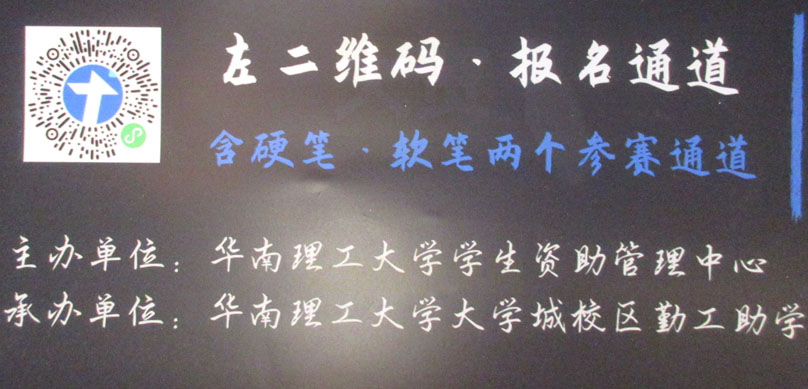 左二维码·报名通道
含硬笔·软笔两个参赛通道
主办单位：华南理工大学学生资助管理中心
承办单位：华南理工大学大学城校区勤工助学